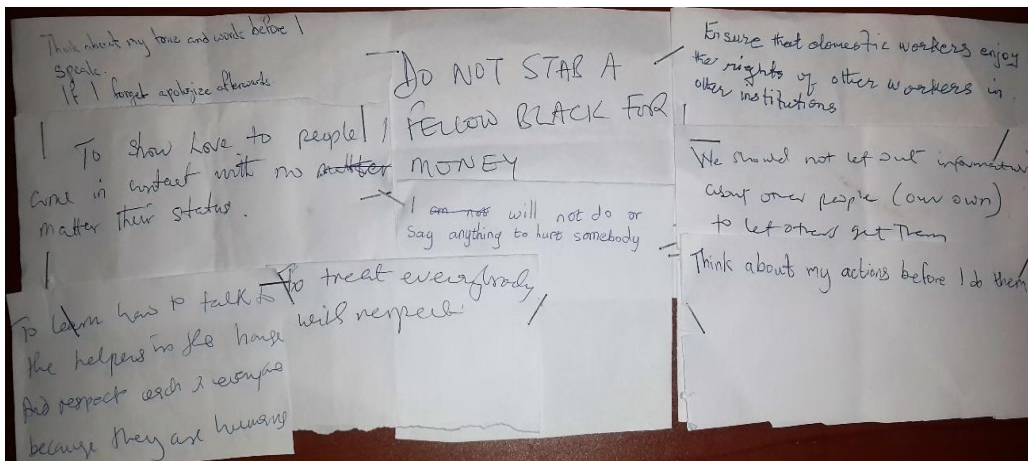 Think about my tone and words before I
speak.
If I forget apologize afterwards.
To show Love to people I
come in contact with no matter
matter their status.
To learn how to talk to
the helpers in the house
And respect each & everyone
because they are humans
To treat everybody
with respect.
DO NOT STAB A
FELLOW BLACK FOR
MONEY
I am not will not do or
Say anything to hurt somebody
Ensure that domestic workers enjoy
the rights of other workers in
other institutions
We should not let out information
about other people (our own)
to let others get Them
Think about my actions before I do them